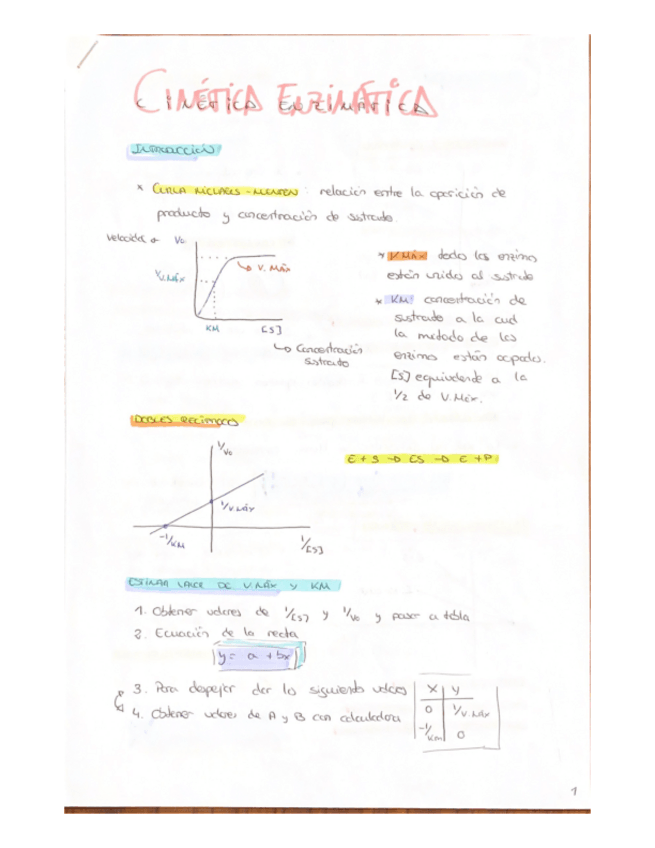 CINÉTICA ENZIMÁTICA
CINÉTICA ENZIMÁTICA
INTRODUCCIÓN
* CURVA MICLAELS-MENTEN: relación entre la aparición de
producto y concentración de sustrato.
velocidad → Vo
½ V.MÁX
↳ V. MÁX
KM
[S]
↳ Concentración
sustrato
* V.MÁX todas las enzimas
están unidas al sustrato
* KM: concentración de
sustrato a la cual
la mitad de las
enzimas están ocupadas.
[S] equivalente a la
½ de V.Máx.
DOBLES RECÍPROCOS
1/Vo
E + S → ES → E + P
1/V.MÁX
-1/KM
1/[S]
ESTIMAR VALOR DE V.MÁX Y KM
1. Obtener valores de 1/[S] y 1/Vo y pasar a tabla
2. Ecuación de la recta
y = a + bx
3. Para despejar dar los siguientes valores
4. Obtener valores de A y B con calculadora
X Y
0 1/V.MÁX
-1/Km 0
1